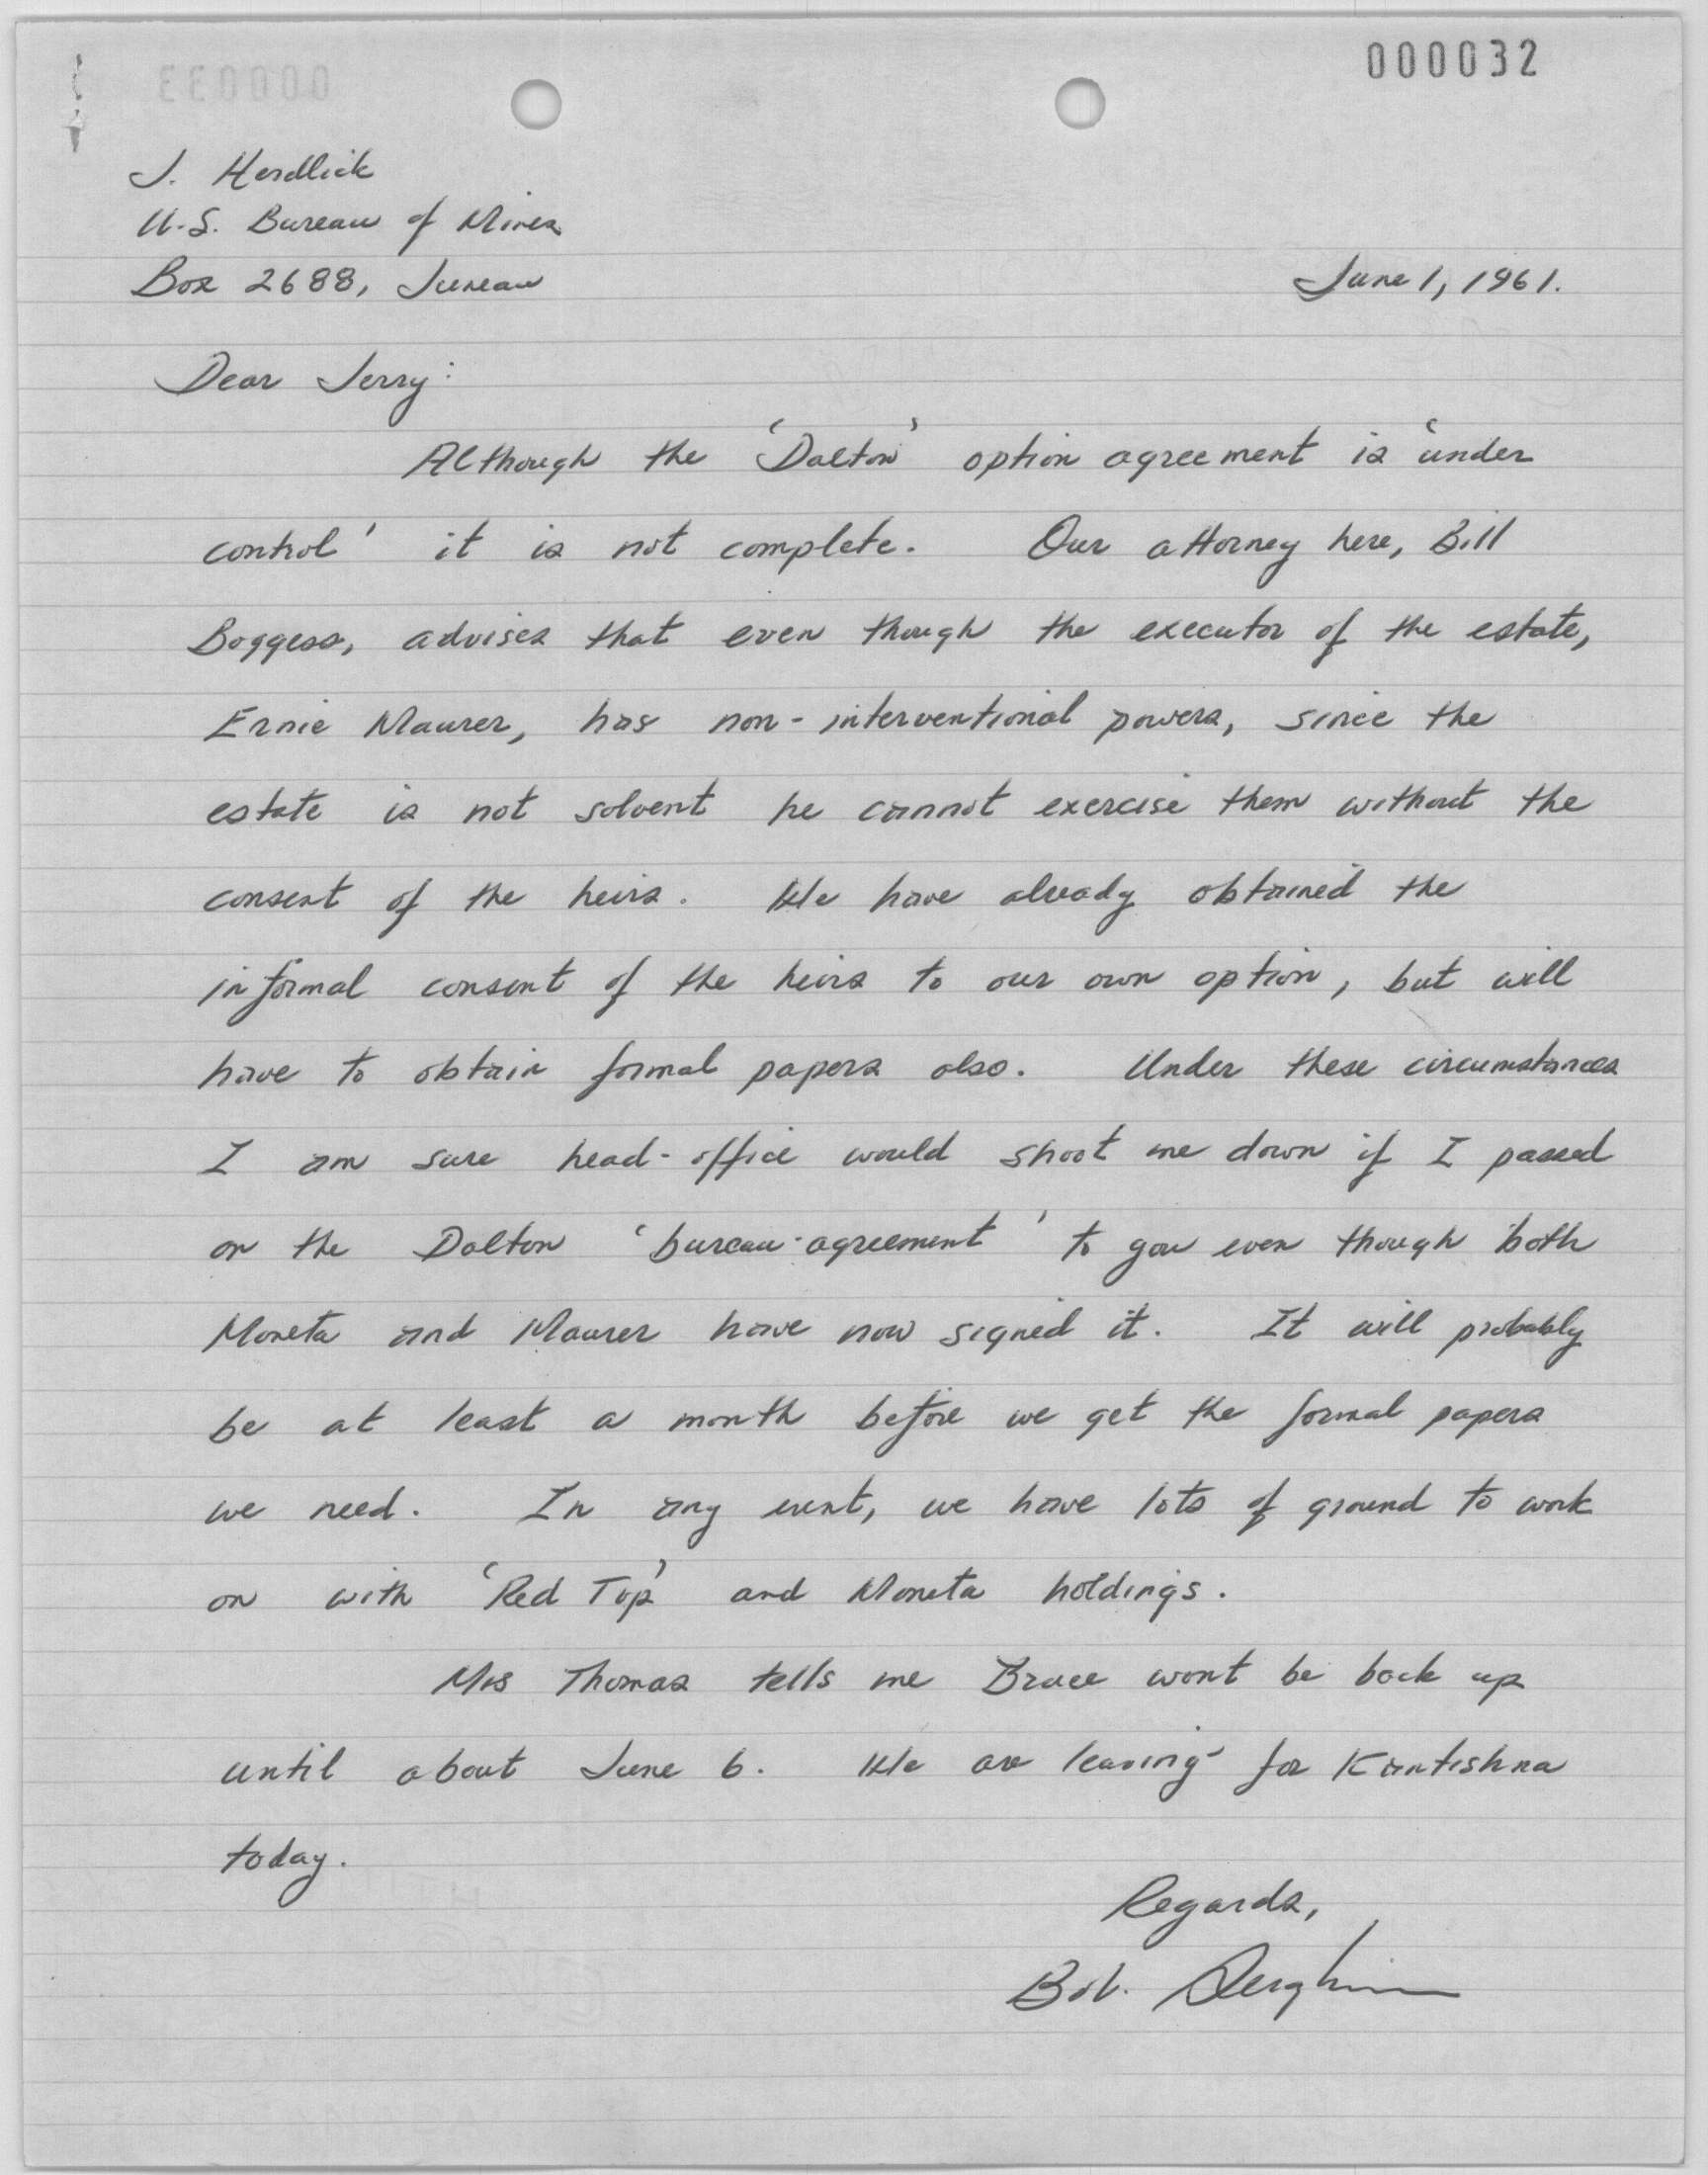 000032
000033
J. Herdlick
U.S. Bureau of Mines
Box 2688, Juneau
June 1, 1961.
Dear Jerry:
Although the 'Dalton' option agreement is 'under
control' it is not complete. Our attorney here, Bill
Boggess, advises that even though the executor of the estate,
Ernie Maurer, has non-interventional powers, since the
estate is not solvent he cannot exercise them without the
consent of the heirs. We have already obtained the
informal consent of the heirs to our own option, but will
have to obtain formal papers also. Under these circumstances
I am sure head-office would shoot me down if I passed
on the Dalton 'bureau-agreement' to you even though both
Moneta and Maurer have now signed it. It will probably
be at least a month before we get the formal papers
we need. In any event, we have lots of ground to work
on with 'Red Top' and Moneta holdings.
Mrs Thomas tells me Bruce wont be back up
until about June 6. We are leaving for Kantishna
today.
Regards,
Bob.